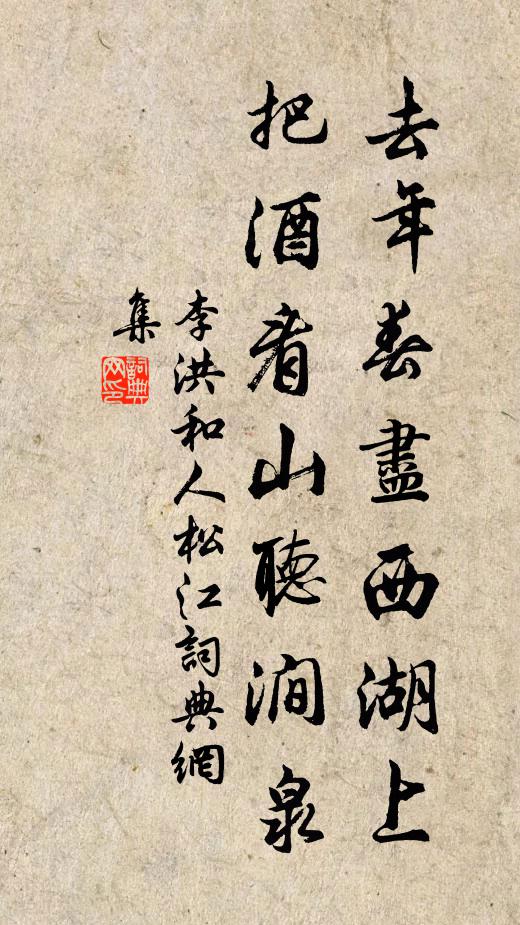 去年春盡西湖上
把酒看山聽澗泉
李洪和人松江詞典網
集
詞典網印